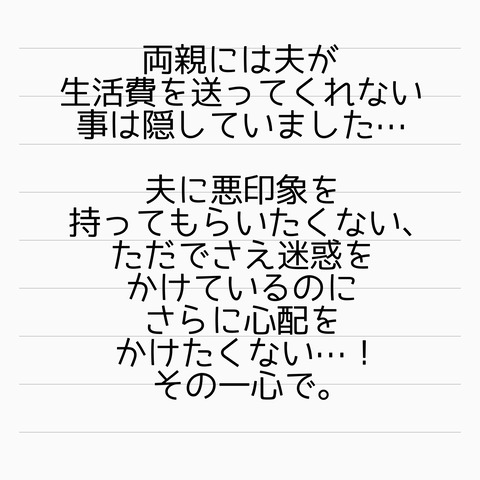 両親には夫が
生活費を送ってくれない
事は隠していました…
夫に悪印象を
持ってもらいたくない、
ただでさえ迷惑を
かけているのに
さらに心配を
かけたくない…！
その一心で。